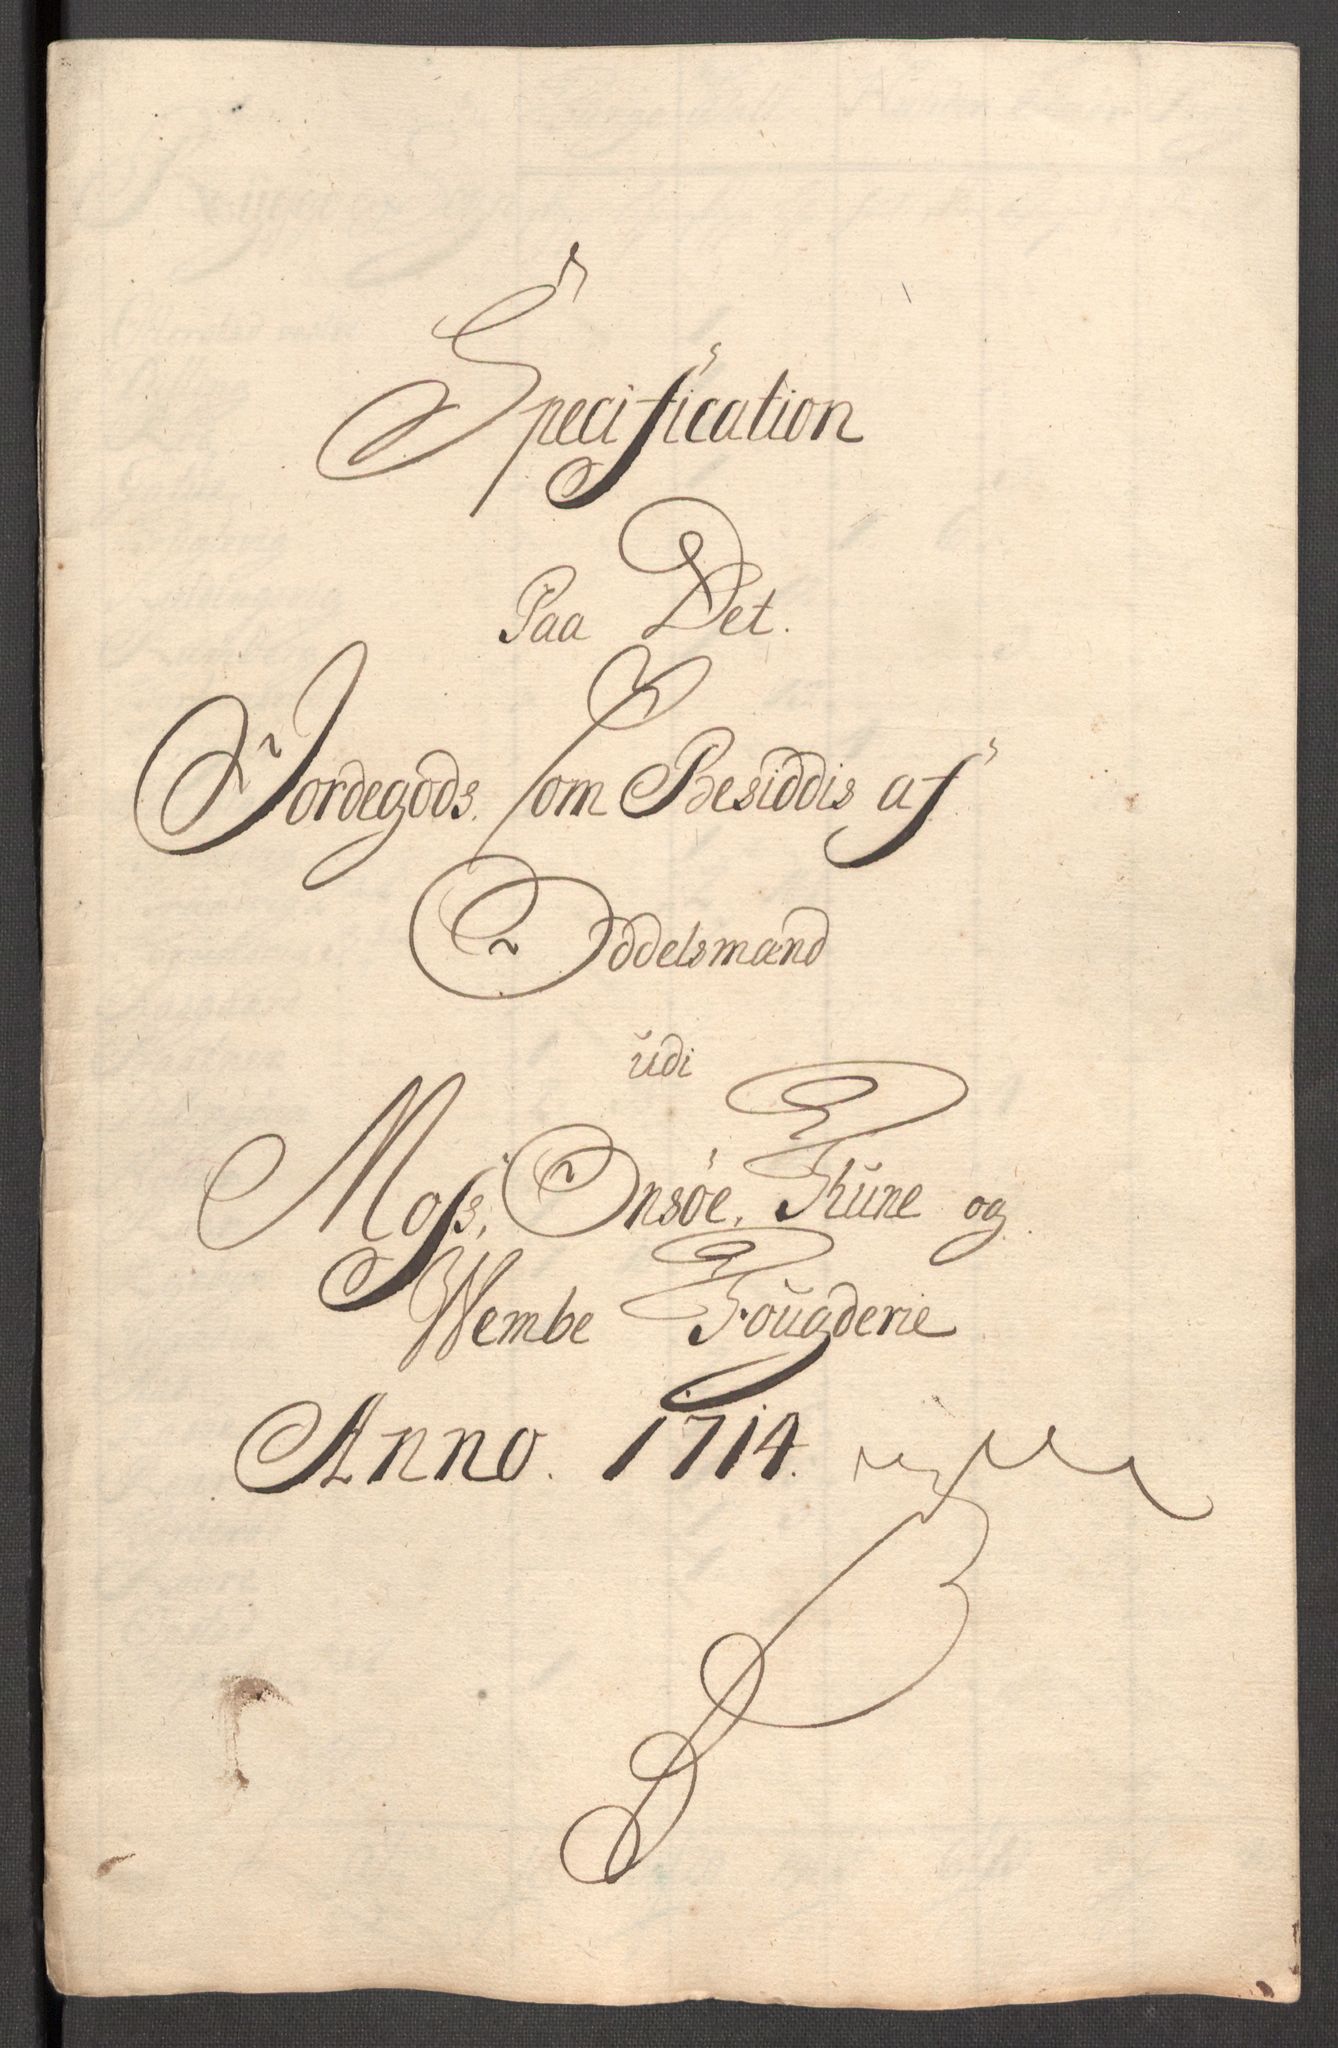 Specification
Paa Det.
Jordegods. som Besiddis af
Oddelsmænd
udi
Moss, Onsøe, Thune og
Wembe Fougderie
Anno. 1714.